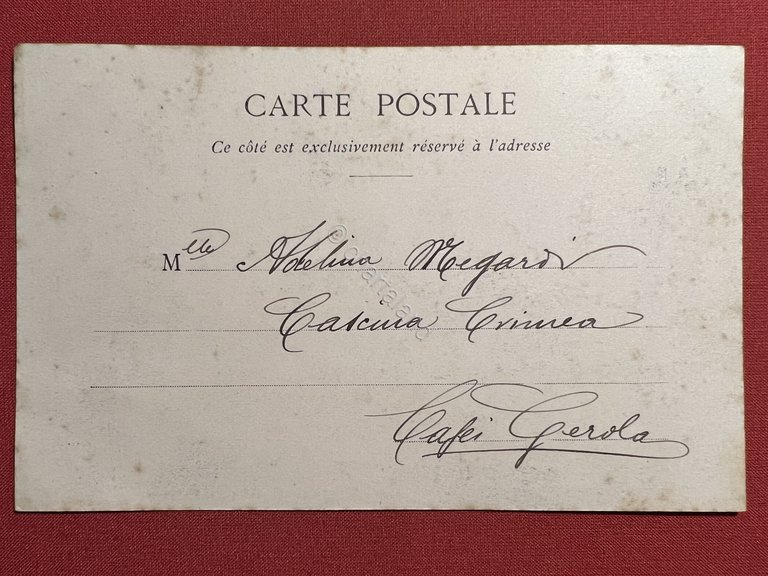 CARTE POSTALE
Ce côté est exclusivement réservé à l'adresse
Mlle Adelina Megardi
Cascina Crimea
Casei Gerola